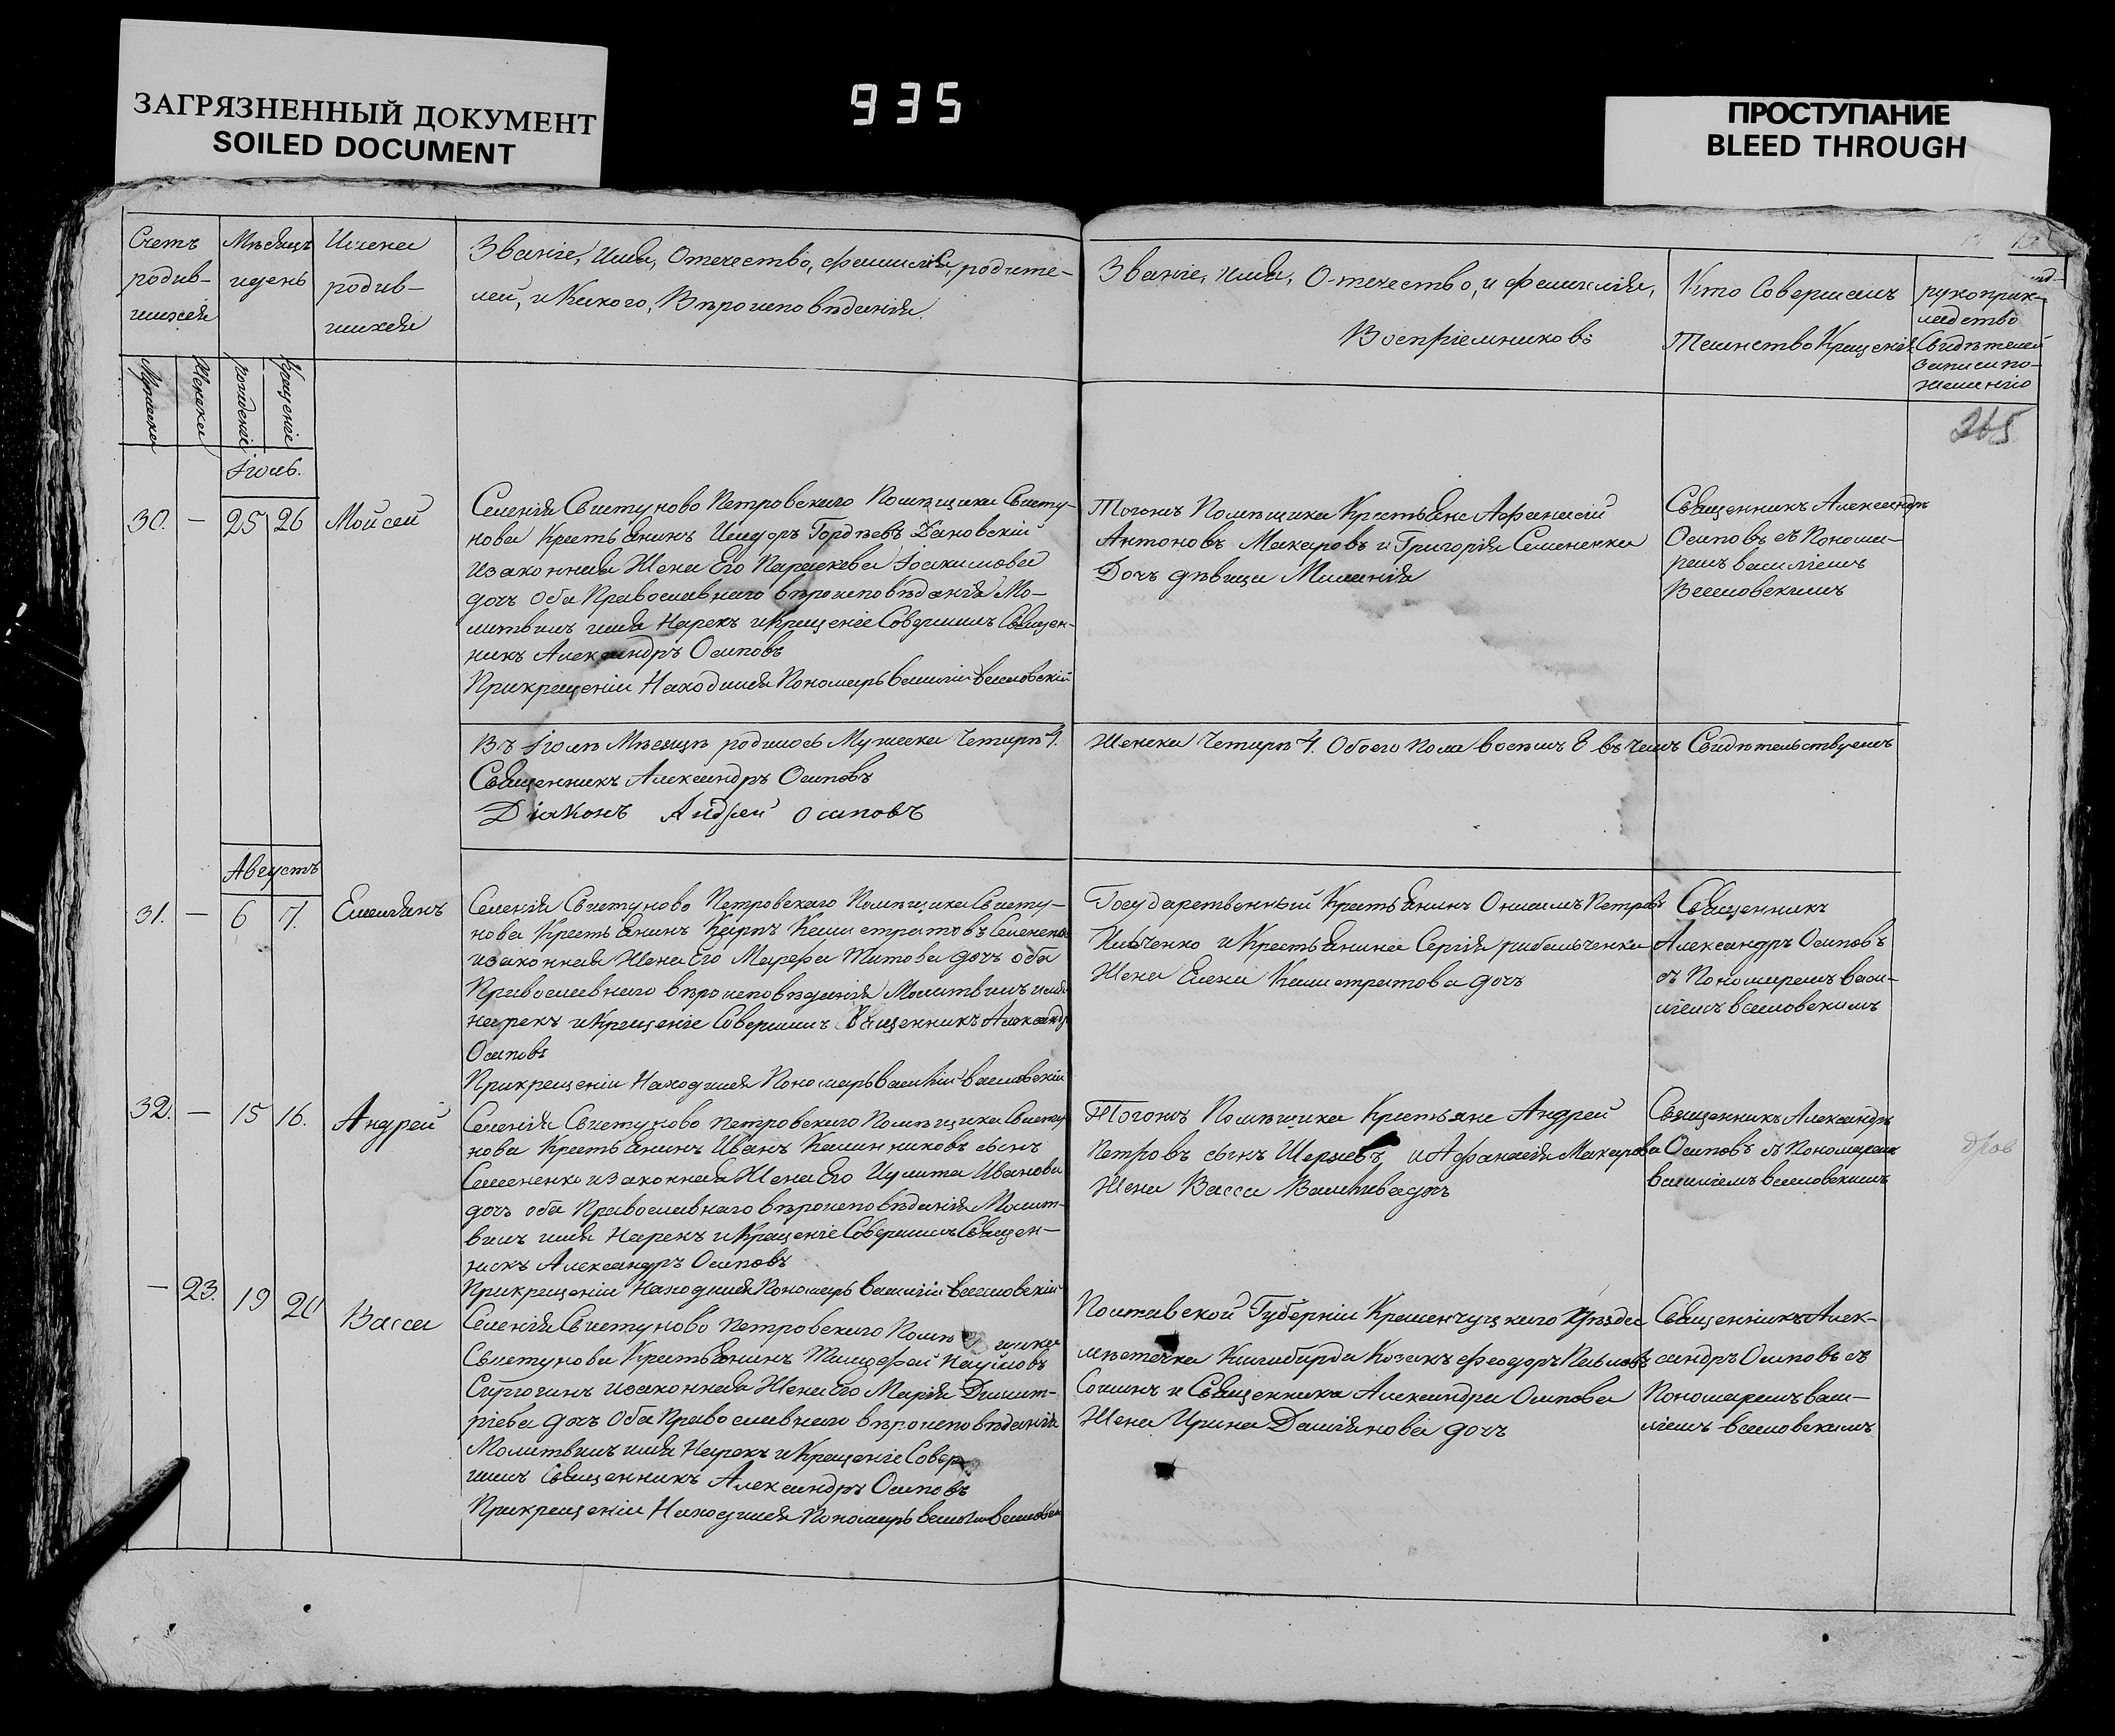 ЗАГРЯЗНЕННЫЙ ДОКУМЕНТ
SOILED DOCUMENT
935
ПРОСТУПАНИЕ
BLEED THROUGH
Счетъ
родив-
шихся
Мѣсяцъ
идень
Имена
родив-
шихся
Званіе, Имя, Отечество, фамилія, родите-
лей, и Какого, Вѣроисповѣданія.
Званіе, имя, Отечество, и фамилія,
Воспріемниковъ
Кто Совершалъ
Таинство Крещенія
рукоприк-
ладство
Свидѣтелей
записи по-
желанію
Мужеска
Женска
рожденіе
Крещеніе
265
Іюль.
30. — 25 26 Мойсей
Селенія Свистуново Петровскаго Помѣщика Свисту-
нова Крестьянинъ Исидоръ Гордѣевъ
изаконная Жена Его Параскева Іоакимова
дочь Оба Православнаго вѣроисповѣданія Мо-
литвилъ имя Нарекъ иКрещеніе Совершилъ Священ-
никъ Александръ Осиповъ
Прикрещеніи Находился Пономарь василій веселовскій
Тогожъ Помѣщика Крестьяне Афанасій
Антоновъ Макаровъ и Григорія Семененка
Дочь дѣвица Миланія
Священникъ Александръ
Осиповъ съ Понома-
ремъ василіемъ
Веселовскимъ
Въ Іюлѣ Мѣсяцѣ родилось Мужеска Четыри 4.
Женска Четыри 4. Обоего Пола восемь 8 въ чемъ Свидѣтельствуемъ
Священникъ Александръ Осиповъ
Діаконъ Андрей Осиповъ
Августъ
31. — 6 7. Емелянъ
Селенія Свистуново Петровскаго Помѣщика Свисту-
нова Крестьянинъ Карпъ Калистратовъ Семененко
изаконная Жена Его Марфа Титова дочь оба
Православнаго вѣроисповѣданія Молитвилъ имя
нарекъ иКрещеніе Совершилъ Священникъ Александръ
Осиповъ
Прикрещеніи Находился Пономарь василій веселовскій
Государственный Крестьянинъ Онисимъ Петровъ
и Крестьянина Сергія рибальченка
Жена Елена Калистратова дочь
Священникъ
Александръ Осиповъ
съ Пономаремъ васи-
ліемъ веселовскимъ
32. — 15 16. Андрей
Селенія Свистуново петровскаго Помѣщика Свисту-
нова Крестьянинъ Иванъ сынъ
Семененко изаконная Жена Его Иулита Иванова
дочь оба Православнаго вѣроисповѣданія Молит-
вилъ имя Нарекъ иКрещеніе Совершилъ Священ-
никъ Александръ Осиповъ
Прикрещеніи Находился Пономарь василій веселовскій
Тогожъ Помѣщика Крестьяне Андрей
Петровъ сынъ и Афанасія Макарова
Жена Васса Василіева дочь
Священникъ Александръ
Осиповъ съ Пономаремъ
василіемъ веселовскимъ
— 23. 19 20 Васса
Селенія Свистуново Петровскаго Помѣщика
Свистунова Крестьянинъ Тимофей Наумовъ
изаконная Жена Его Марія Димит-
ріева дочь Оба Православнаго вѣроисповѣданія
Молитвилъ имя Нарекъ иКрещеніе Совер
шилъ Священникъ Александръ Осиповъ
Прикрещеніи Находился Пономарь
Полтавской Губерніи Кременчуцкаго Уѣзда
мѣстечка Келиберда Козакъ Феодоръ Павловъ
и Священника Александра Осипова
Жена Ирина Даміянова дочь
Священникъ Алек-
сандръ Осиповъ съ
Пономаремъ васи-
ліемъ веселовскимъ